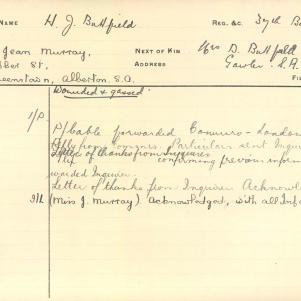 NAME H J Battfield REG. &C. 50th Ba
Jean Murray, NEXT OF KIN Mrs D. Battfield
St, ADDRESS Gawler. S.A.
eenstown, Alberton. S.A. FI
Wounded & gassed.
1/P. P/Cable forwarded Comuro - London
from Comgnes. Particulars sent Inqui
Letter of thanks from Inquirer
confirming previous infor
warded Inquirer.
Letter of thanks from Inquirer Acknowl
(Miss J. Murray). Acknowledged, with all Info